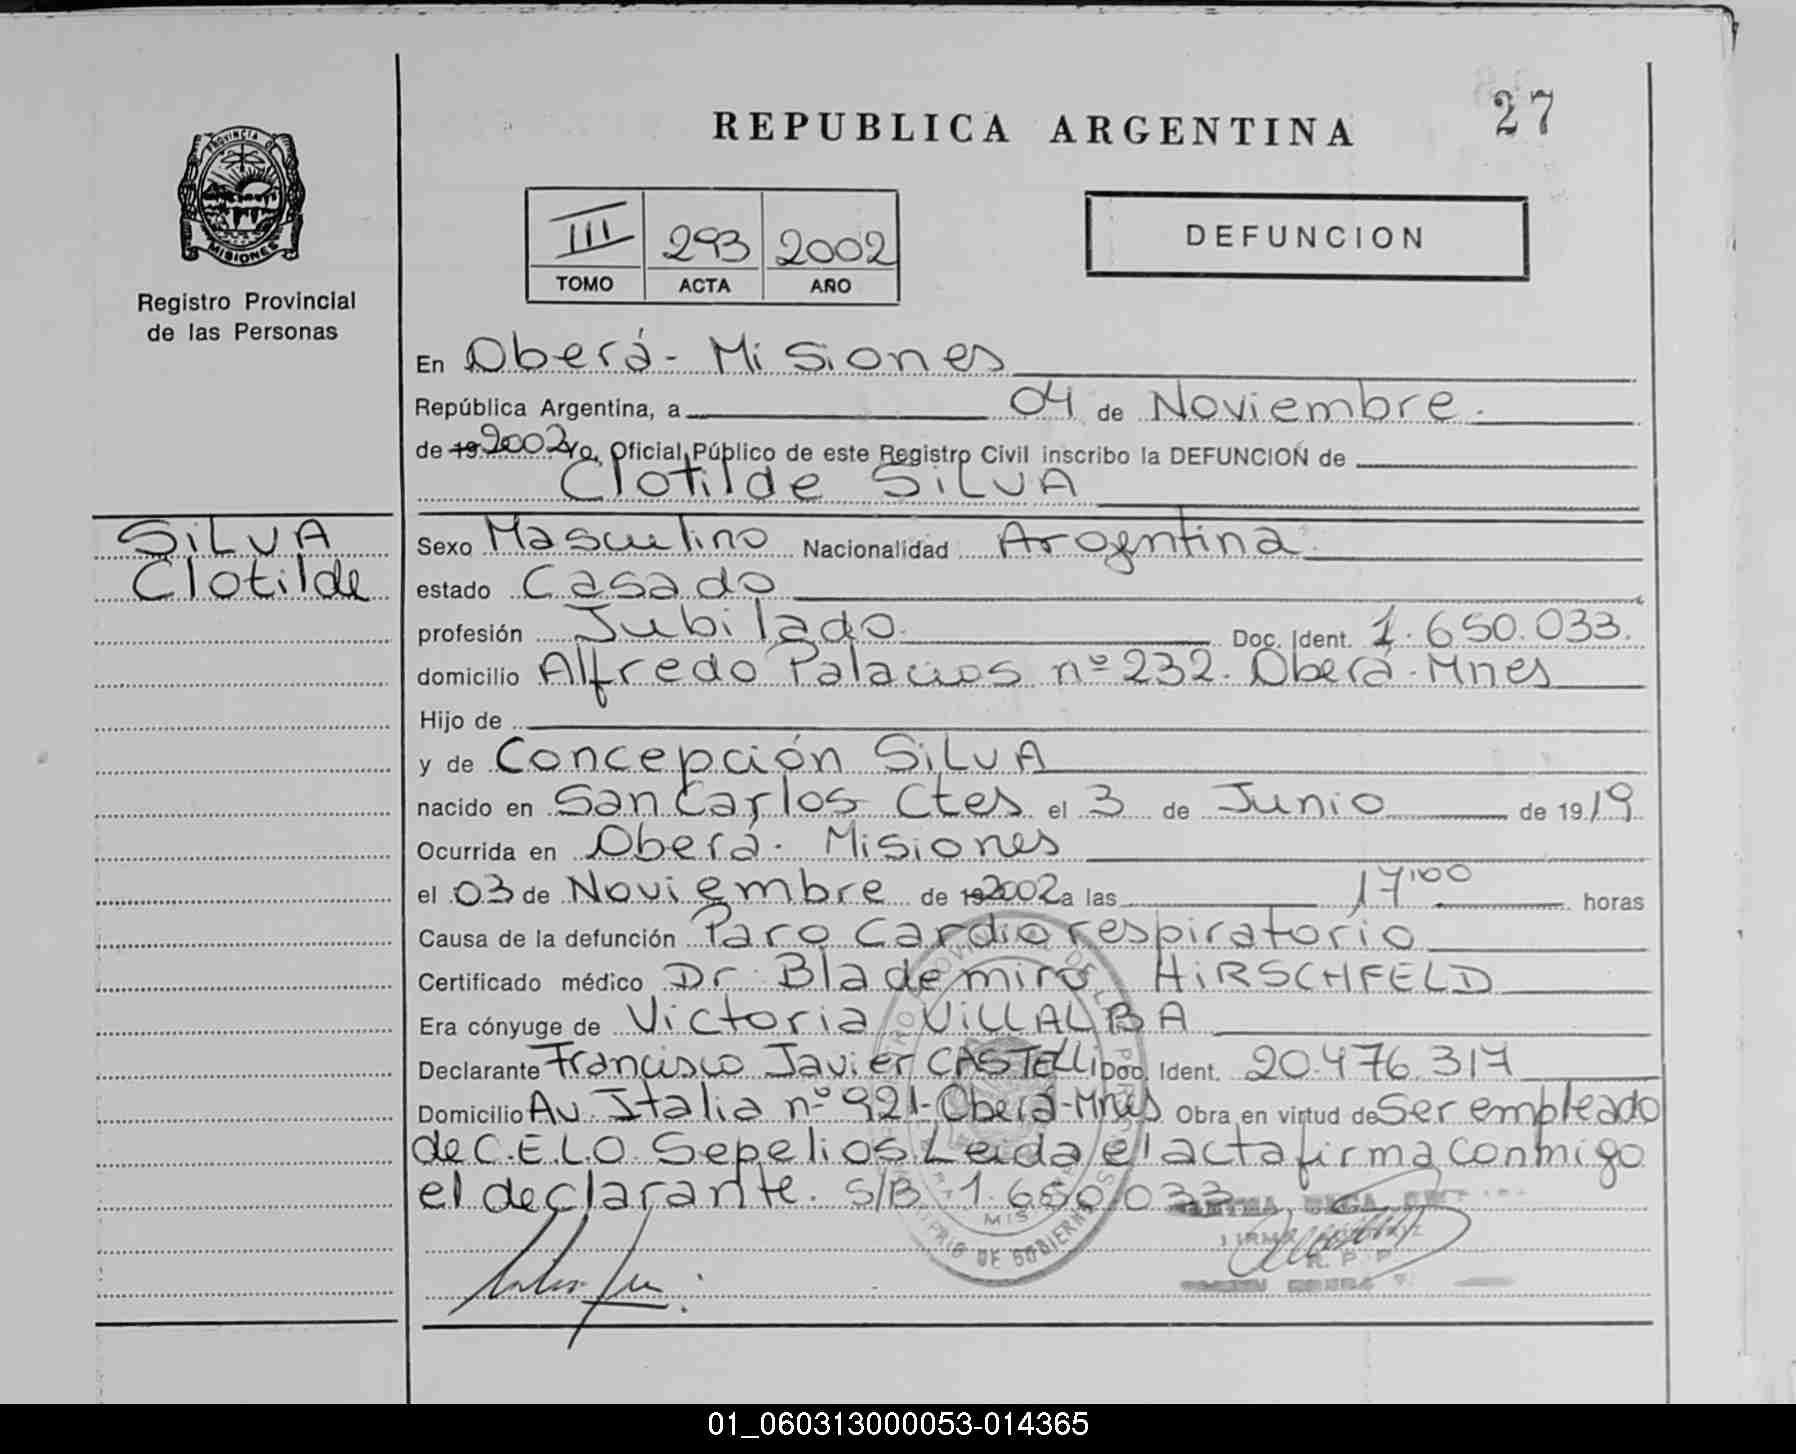 27
REPUBLICA ARGENTINA
PROVINCIA DE
MISIONES
Registro Provincial
de las Personas
III 293 2002
TOMO ACTA AÑO
DEFUNCION
En Oberá - Misiones
República Argentina, a 04 de Noviembre.
de 19 2002 Yo, Oficial Público de este Registro Civil inscribo la DEFUNCION de
Clotilde SILVA
SILVA
Clotilde
Sexo Masculino Nacionalidad Argentina
estado Casado
profesión Jubilado. Doc. Ident. 1.650.033.
domicilio Alfredo Palacios nº 232. Oberá - Mnes
Hijo de
y de Concepción SILVA
nacido en San Carlos Ctes el 3 de Junio de 1919
Ocurrida en Oberá - Misiones
el 03 de Noviembre de 19 2002 a las 17'00 horas
Causa de la defunción Paro Cardio respiratorio
Certificado médico Dr. Blademiro HIRSCHFELD
Era cónyuge de Victoria VILLALBA
Declarante Francisco Javier CASTELLI Doc. Ident. 20.476.317
Domicilio Av. Italia nº 921 - Oberá - Mnes Obra en virtud de Ser empleado
de C.E.L.O. Sepelios Leida el acta firma conmigo
el declarante. S/B 1.650.033
R. P. P.
01_060313000053-014365